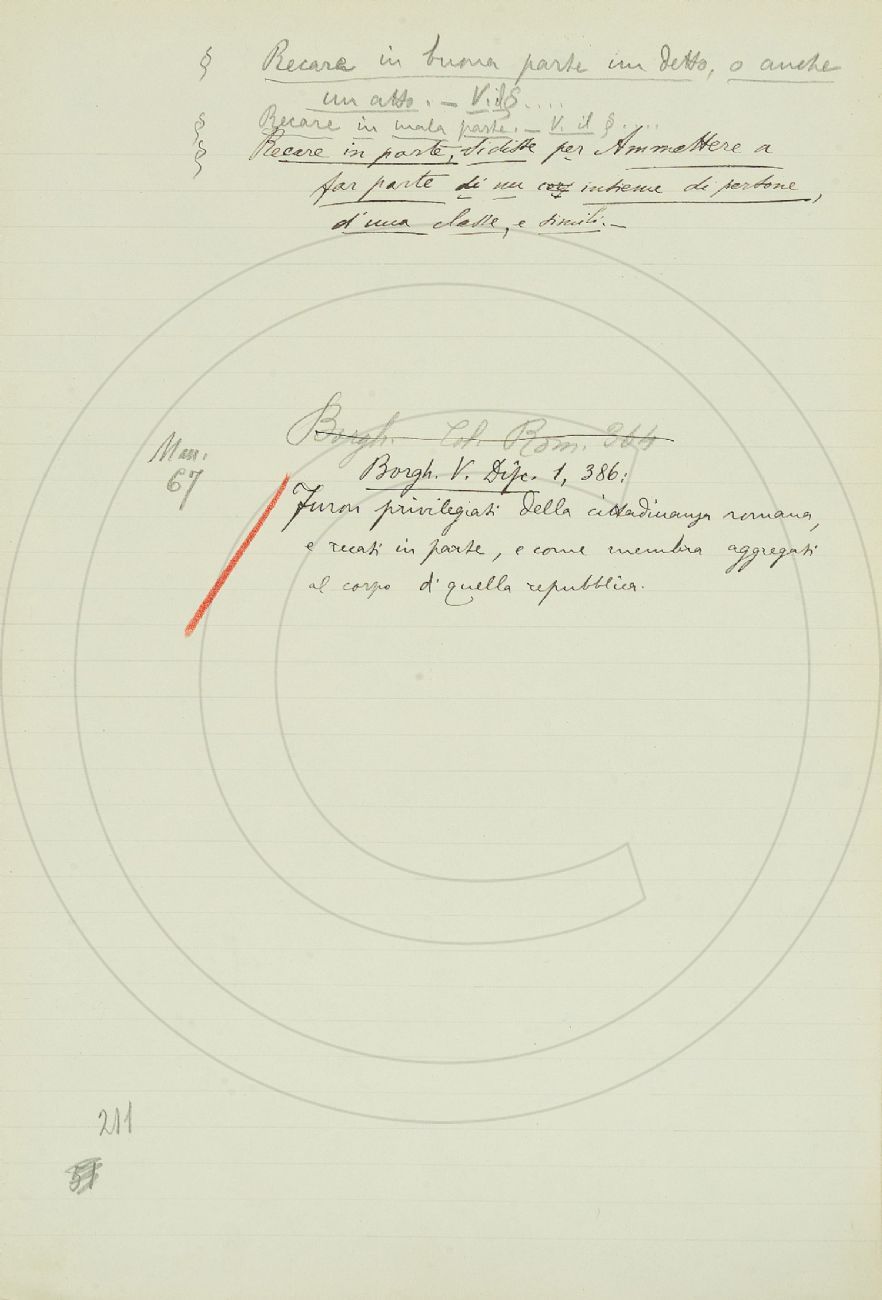 § Recare in buona parte un detto, o anche
un atto. – V. il § ....
§ Recare in mala parte. – V. il § .....
§ Recare in parte, si disse per Ammettere a
far parte di un insieme di persone,
d'una classe, e simili. –
Borgh. Col. Rom. 364
Man.
67
Borgh. V. Disc. 1, 386:
Furon privilegiati della cittadinanza romana,
e recati in parte, e come membra aggregati
al corpo di quella repubblica.
211